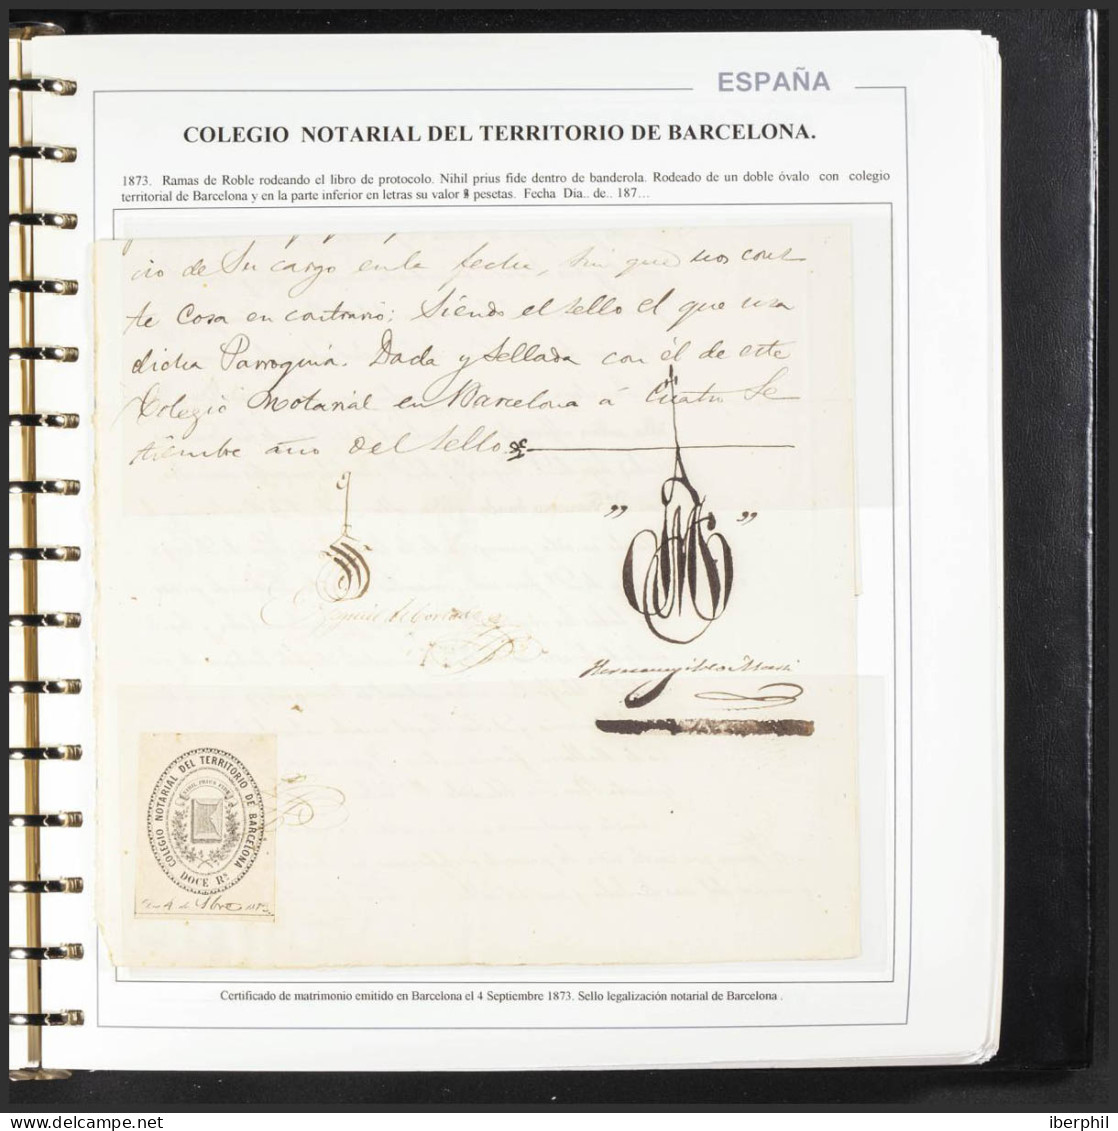 ESPAÑA
COLEGIO NOTARIAL DEL TERRITORIO DE BARCELONA.
1873. Ramas de Roble rodeando el libro de protocolo. Nihil prius fide dentro de banderola. Rodeado de un doble óvalo con colegio
territorial de Barcelona y en la parte inferior en letras su valor pesetas. Fecha Día.. de.. 187...
cio de Su cargo en la fecha, sin que nos cons-
te Cosa en contrario; Siendo el sello el que usa
dicha Parroquia. Dada y Sellada con él de este
Colegio Notarial en Barcelona á Cuatro Se-
tiembre año del Sello.
COLEGIO NOTARIAL DEL TERRITORIO DE BARCELONA
NIHIL PRIUS FIDE
DOCE Rs
4 de 7bre 1873
Certificado de matrimonio emitido en Barcelona el 4 Septiembre 1873. Sello legalización notarial de Barcelona .
iberphil